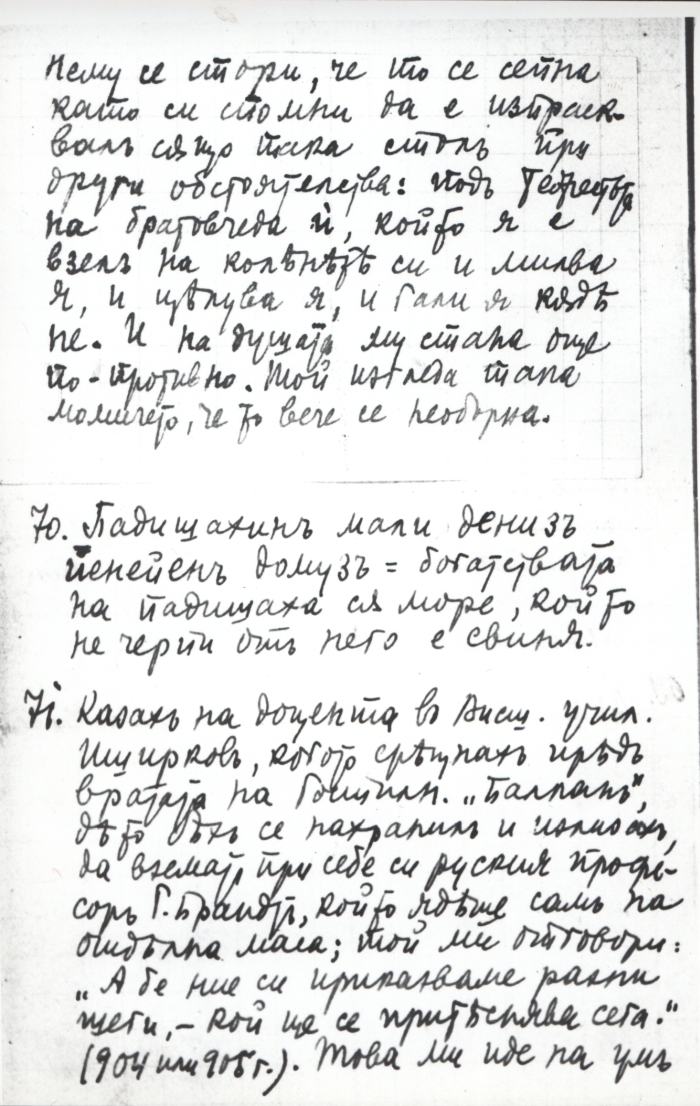 Нему се стори, че то се сепна
като си спомни да е изтраск-
валъ сѫщо така столъ при
други обстоятелства: подъ
на братовчеда ѝ, който я е
взелъ на колѣнѣтѣ си и милва
я, и цѣлува я, и гали я кѫдѣ
не. И на душата му стана още
по-противно. Той изгледа така
момичето, че то вече се необърна.
70. Падишахинъ мали денизъ
йенейенъ домузъ = богатствата
на падишаха сѫ море, който
не черпи отъ него е свиня.
71. Казахъ на доцента въ Висш. учил.
Иширковъ, когото срѣщнахъ прѣдъ
вратата на Гостилн. „Балканъ",
дѣто бѣхъ се нахранилъ и излизахъ,
да взематъ при себе си руския профе-
соръ Г. Брандтъ, който ядѣше самъ на
отдѣлна маса; той ми отговори:
„А бе ние си приказваме разни
щети, – кой ще се притѣснява сега."
(904 или 905 г.). Това ми иде на умъ